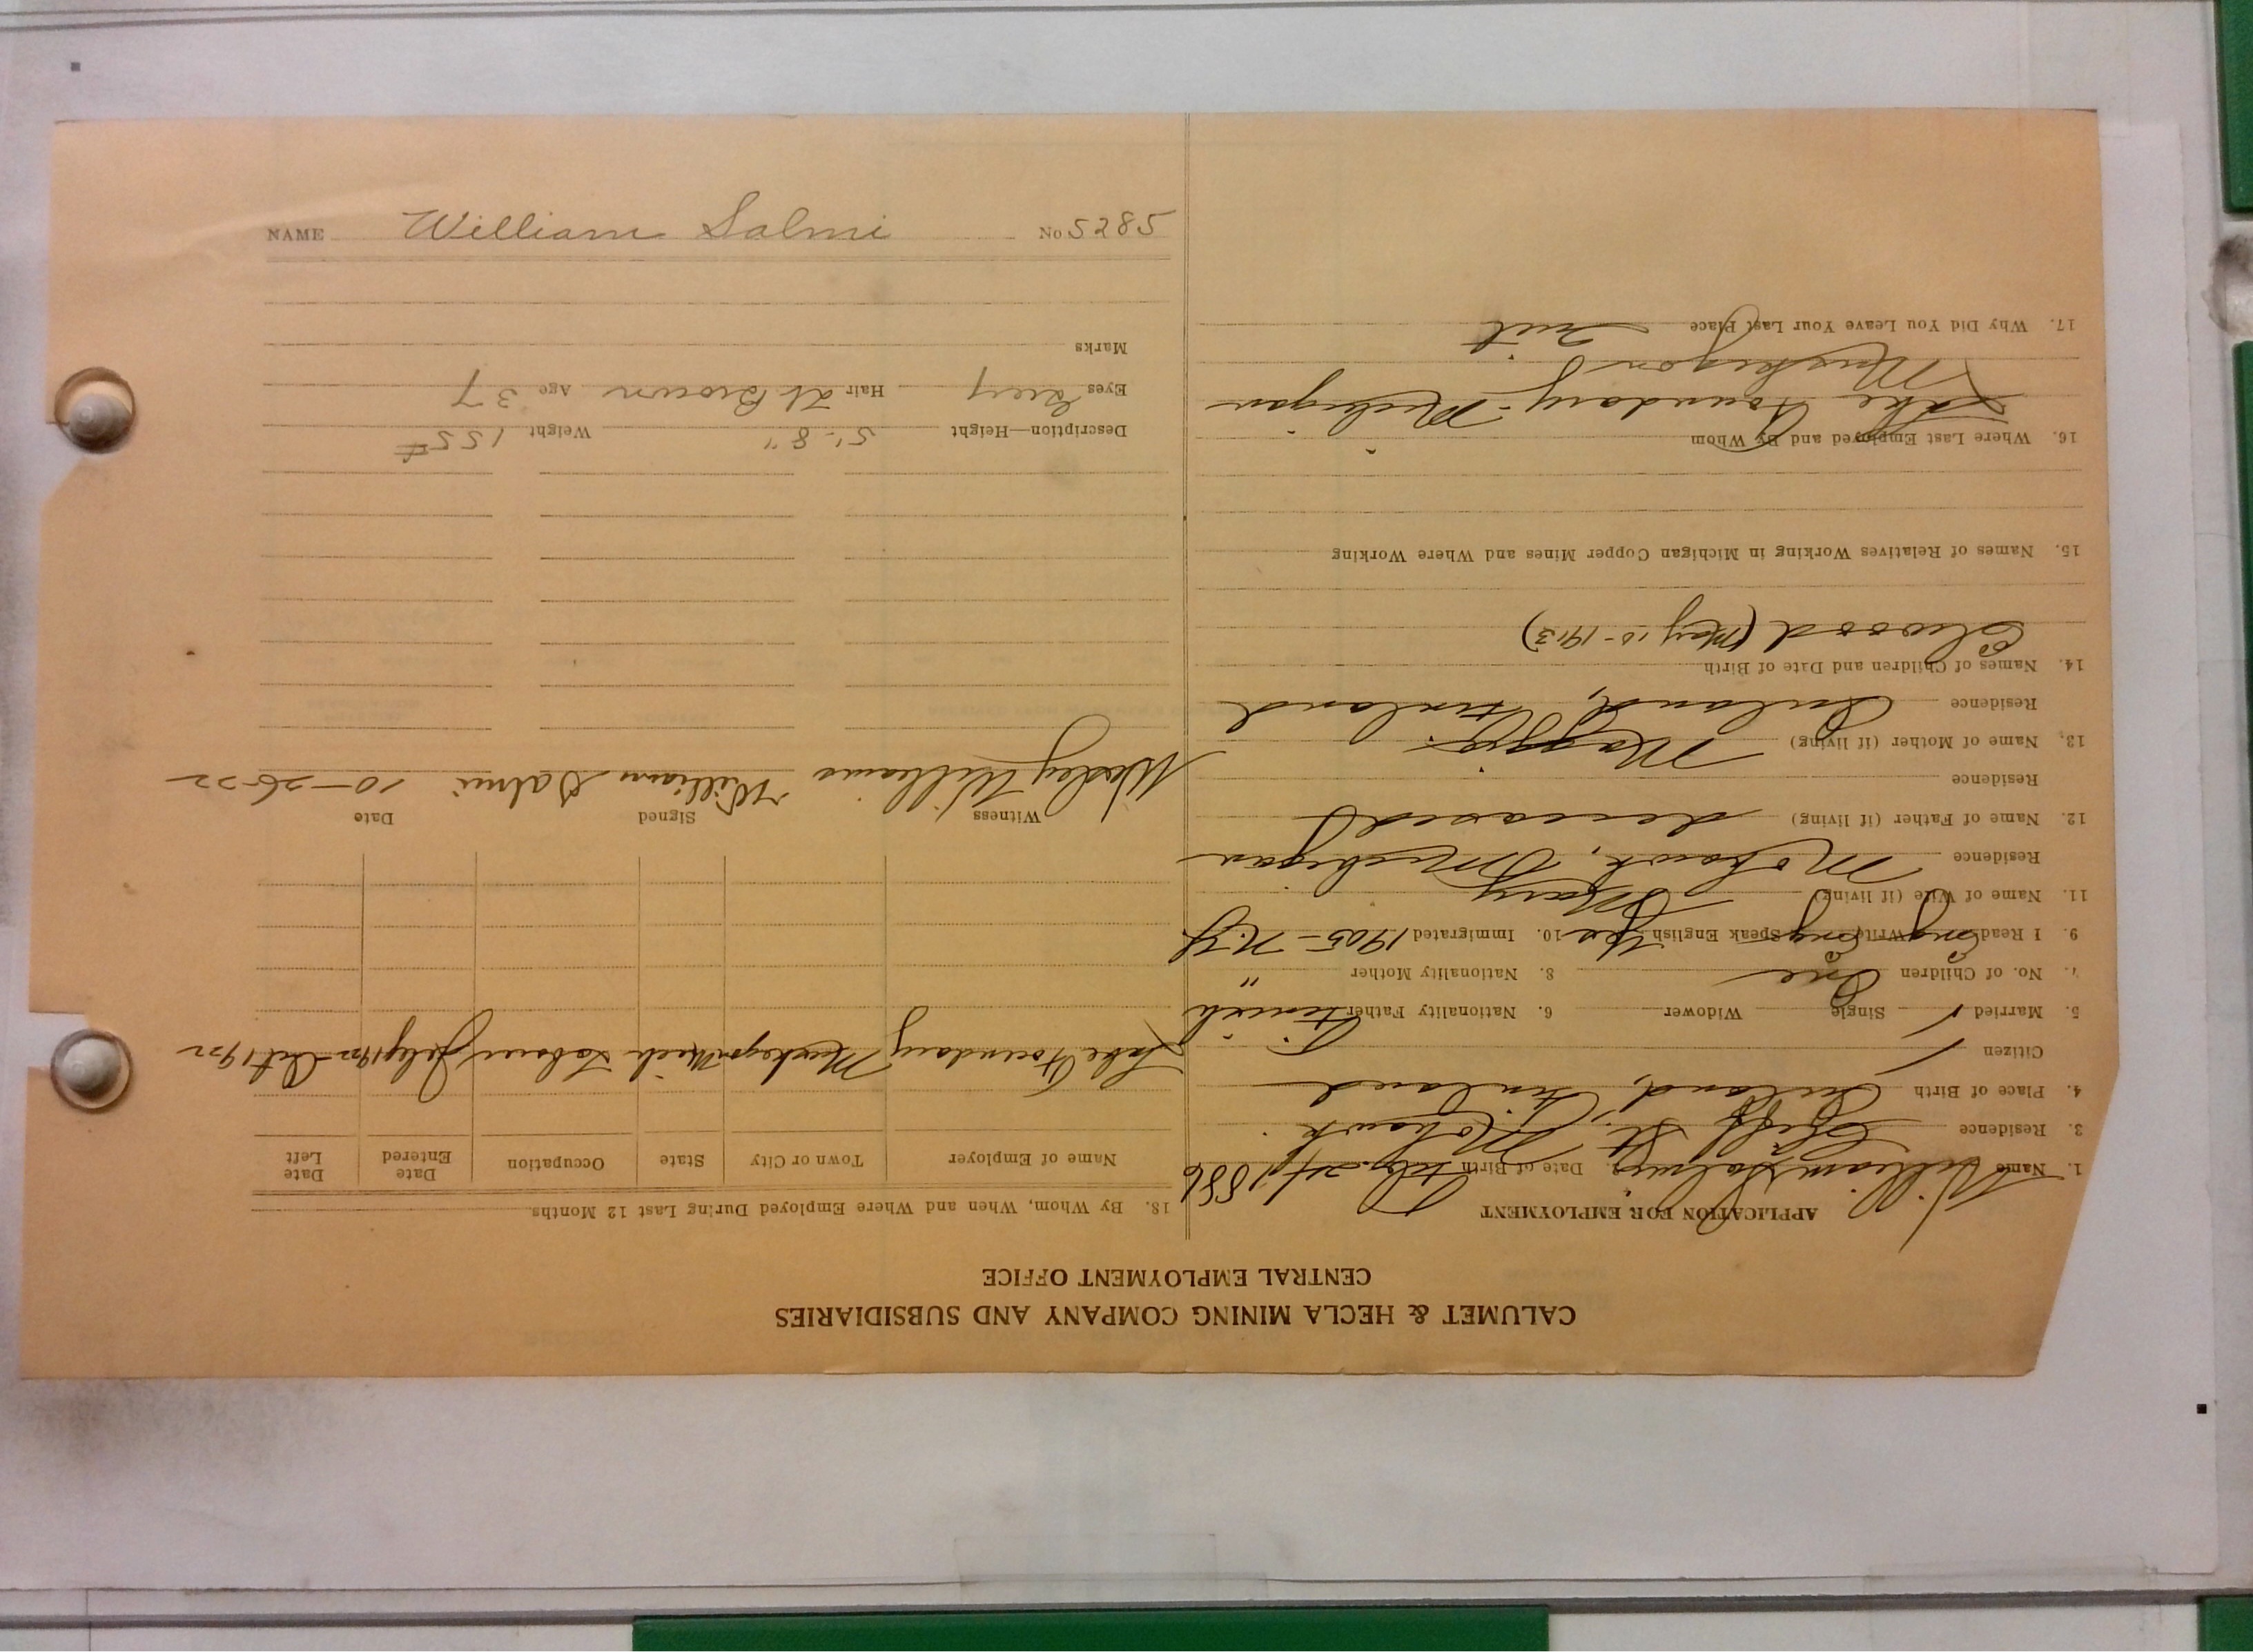 CALUMET & HECLA MINING COMPANY AND SUBSIDIARIES
CENTRAL EMPLOYMENT OFFICE
APPLICATION FOR EMPLOYMENT
1. Name William Salmi Date of Birth Feb. 24, 1886
3. Residence Cliff St. Mohawk
4. Place of Birth Finland
Citizen
5. Married / Single Widower 6. Nationality Father Finnish
7. No. of Children One 8. Nationality Mother "
9. I Read Eng Write Eng Speak English Yes 10. Immigrated 1905 - N.Y.
11. Name of Wife (if living) Mary
Residence Mohawk, Michigan
12. Name of Father (if living) deceased
Residence
13. Name of Mother (if living) Maggie
Residence Finland
14. Names of Children and Date of Birth
Elwood (May 10 - 1913)
15. Names of Relatives Working in Michigan Copper Mines and Where Working
16. Where Last Employed and By Whom
Lake Foundary - Michigan
Muskegon
17. Why Did You Leave Your Last Place Quit
18. By Whom, When and Where Employed During Last 12 Months
Name of Employer Town or City State Occupation Date Entered Date Left
Lake Foundary Muskegon Mich Laborer July 1922 Oct 1922
Witness Signed Date
Wesley Williams William Salmi 10-26-22
Description—Height 5'-8" Weight 155#
Eyes Grey Hair Lt Brown Age 37
Marks
NAME William Salmi No 5285